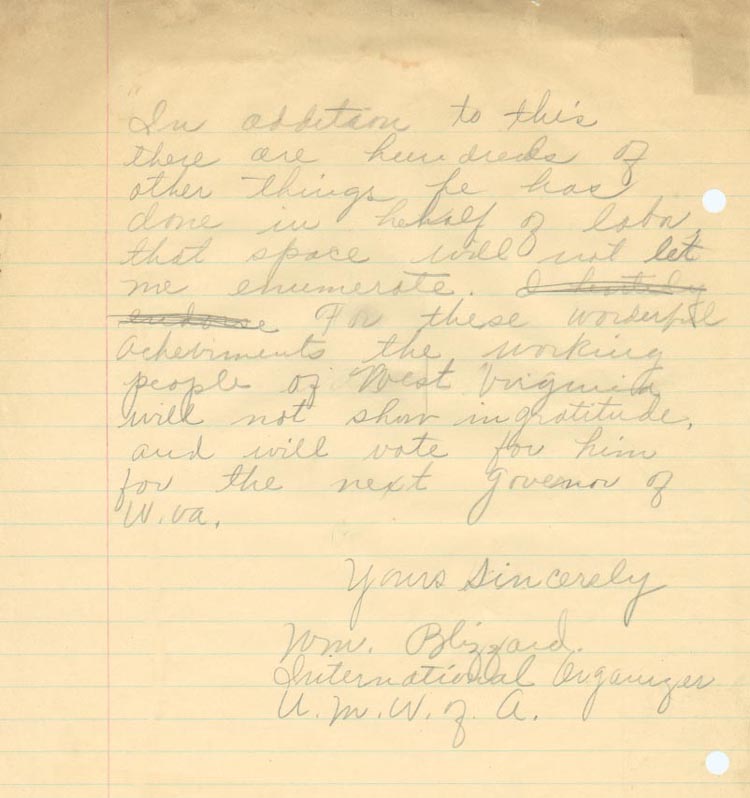 In addition to this
there are hundreds of
other things he has
done in behalf of labor,
that space will not let
me enumerate. I heartily
endorse For these wonderful
acheivments the working
people of West Virginia
will not show ingratitude,
and will vote for him
for the next Governor of
W.Va.
Yours Sincerely
Wm. Blizzard.
International Organizer
U.M.W. of A.